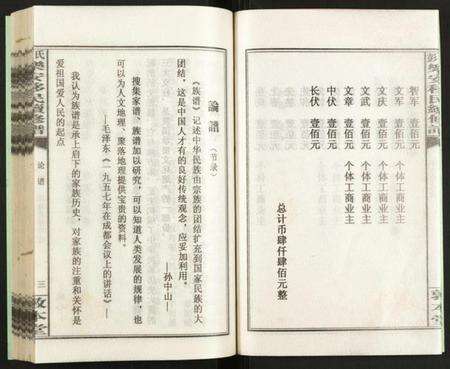 智军 壹佰元
文军 壹佰元 个体工商业主
文庆 壹佰元 个体工商业主
文武 壹佰元 个体工商业主
文章 壹佰元 个体工商业主
中伏 壹佰元
长伏 壹佰元
总计币肆仟肆佰元整
论谱(节录)
《族谱》记述中华民族由宗族的团结扩充到国家民族的大
团结,这是中国人才有的良好传统观念,应妥加利用。
——孙中山——
搜集家谱、族谱加以研究,可以知道人类发展的规律,也
可以为人文地理、聚落地理提供宝贵的资料。
——毛泽东(一九五七年在成都会议上的讲话)——
我认为族谱是承上启下的家族历史,对家族的注重和关怀是
爱祖国爱人民的起点
论谱
三
敦本堂